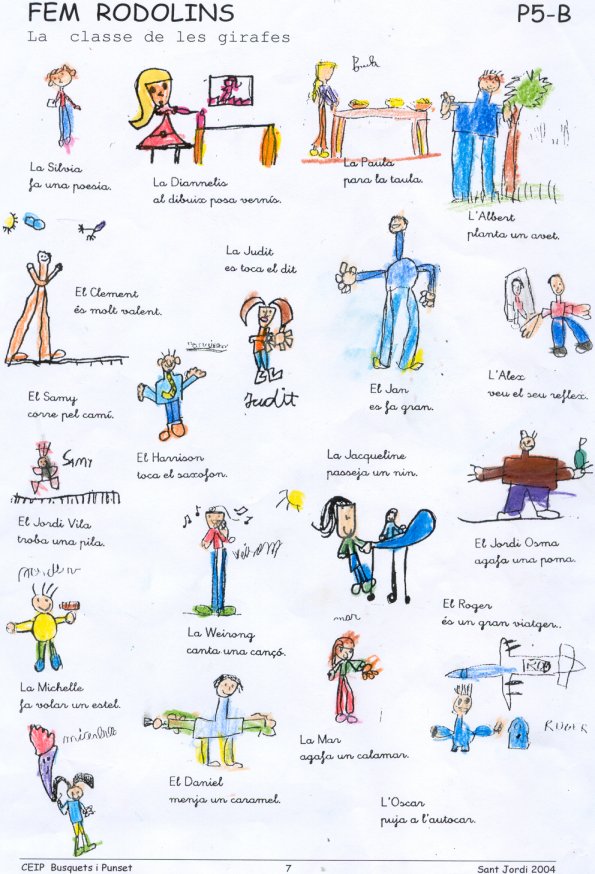 FEM RODOLINS
P5-B
La classe de les girafes
La Silvia
fa una poesia.
La Diannelis
al dibuix posa vernís.
La Paula
para la taula.
L'Albert
planta un avet.
El Clement
és molt valent.
La Judit
es toca el dit
Judit
El Jan
es fa gran.
L'Alex
veu el seu reflex.
El Samy
corre pel camí.
SAMY
El Harrison
toca el saxofon.
La Jacqueline
passeja un nin.
El Jordi Vila
troba una pila.
El Jordi Osma
agafa una poma.
La Weirong
canta una cançó.
El Roger
és un gran viatger..
ROGER
La Michelle
fa volar un estel.
mar
La Mar
agafa un calamar.
El Daniel
menja un caramel.
L'Oscar
puja a l'autocar.
CEIP Busquets i Punset
7
Sant Jordi 2004